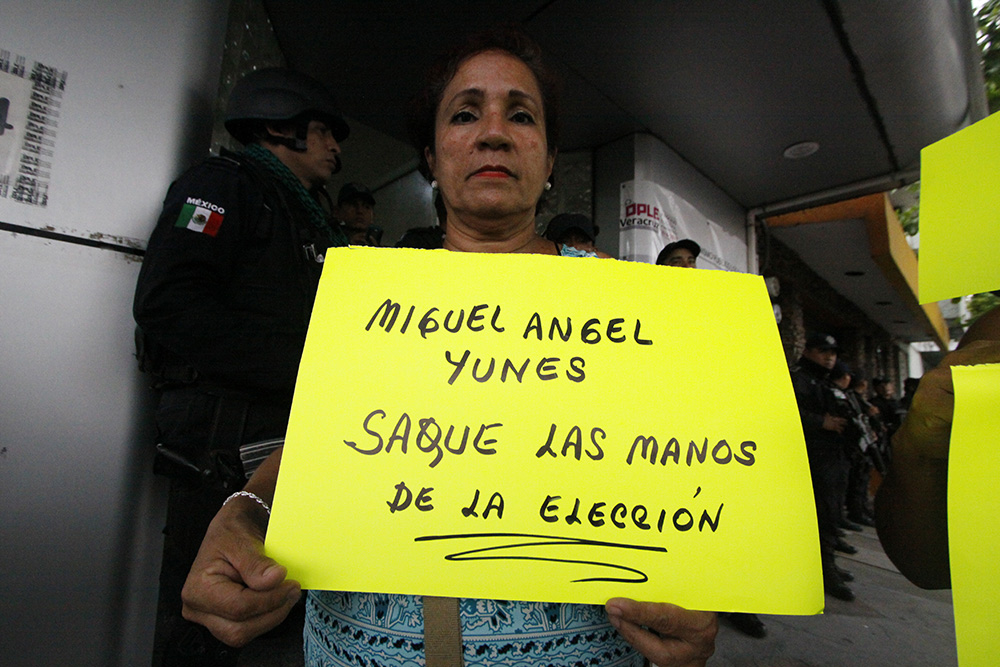 MÉXICO
OPLE
Veracruz
MIGUEL ANGEL
YUNES
SAQUE LAS MANOS
DE LA ELECCIÓN